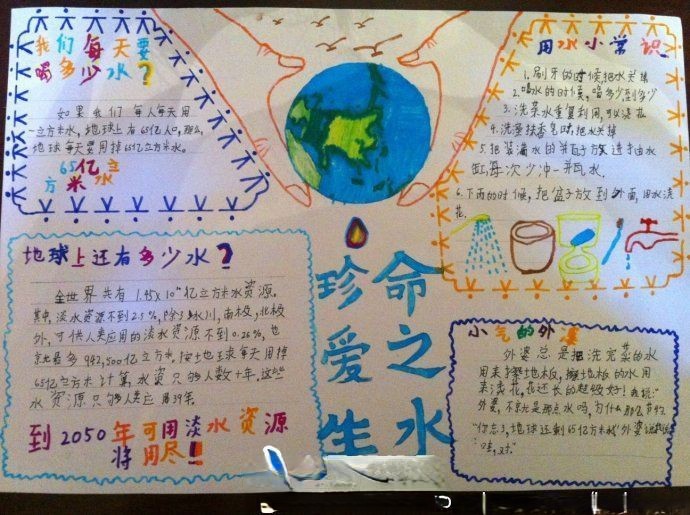 我们每天要
喝多少水？
如果我们每人每天用
一立方米水，地球上有65亿人口，那么，
地球每天要用掉65亿立方米水。
65亿立
方米水
用水小常识
1.刷牙的时候把水关掉
2.喝水的时候，喝多少到多少
3.洗菜水重复利用，可以浇花
4.洗手抹香皂时，把水关掉
5.把装满水的瓶子放进抽水
缸，每次少冲一瓶水.
6.下雨的时候，把盆子放到外面，用水浇
花.
地球上还有多少水？
全世界共有1.45×10 亿立方米水资源.
其中，淡水资源不到2.5%，除冰川，南极，北极
外，可供人类应用的淡水资源不到0.26%，也
就是多942,500亿立方米，按地球每天用掉
65亿立方米计算，水资只够人数十年，这些
水资源只够人类应用39年.
到2050年可用淡水资源
将用尽！！
珍爱生
命之水
小气的外婆
外婆总是把洗完菜的水
用来擦地板，擦地板的水用
来浇花，花还长的超级好！我说：“
外婆，不就是那点水吗，为什么那么节约
“你忘了，地球还剩65亿立方米水”外婆说
“哇，对.”